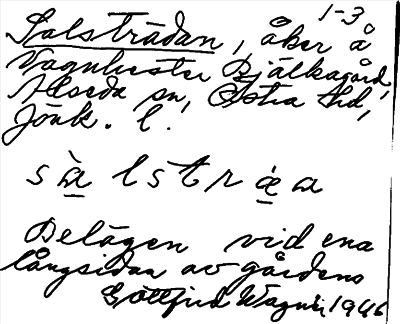 1-3
Salsträdan, åker å
Vagnhester Bjälkagård,
Alseda sn, Östra hd,
Jönk. l.
sà̱ lstrá̱a
Belägen vid ena
långsidan av gårdens
Gottfrid Wagnér 1946